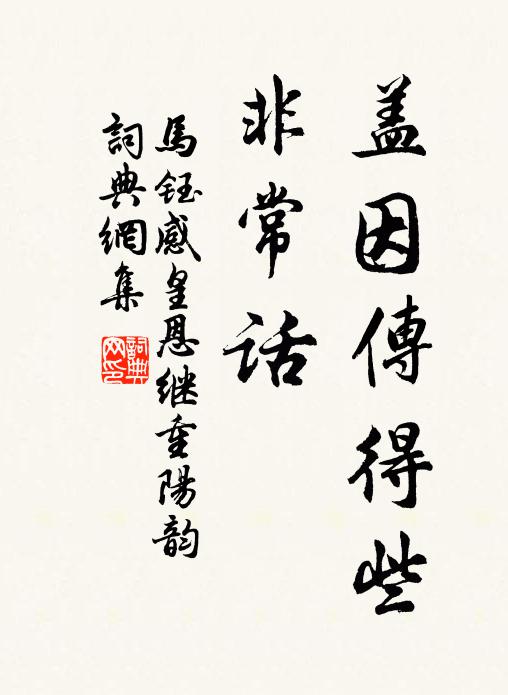 盖因傳得些
非常话
馬钰感皇恩继重陽韵
詞典網集
詞典
网印